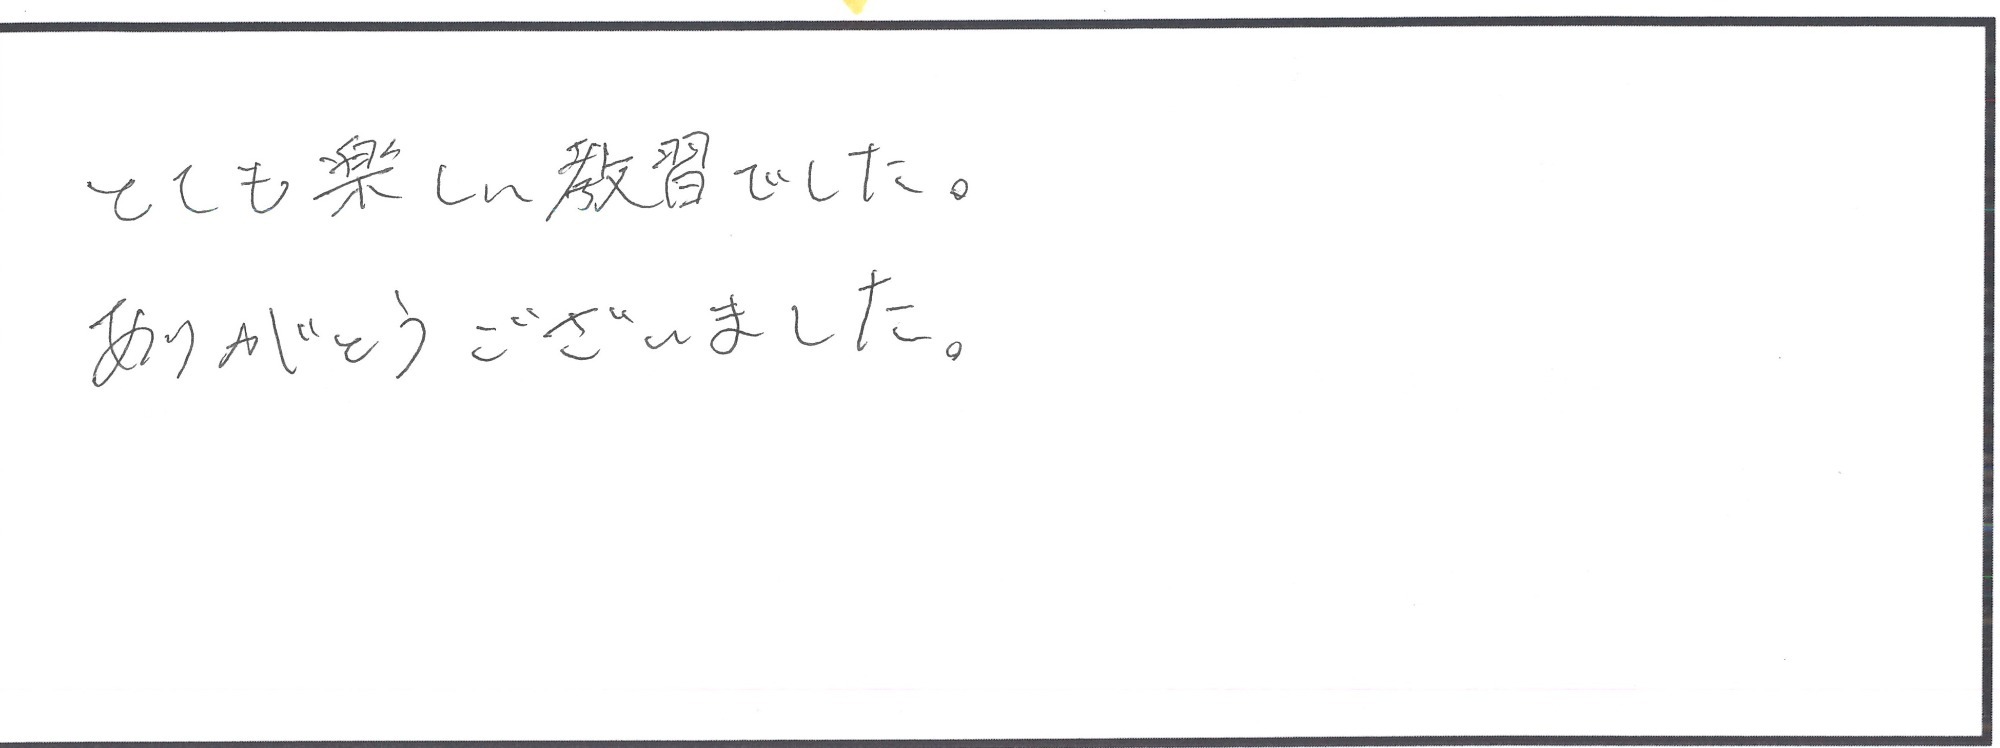 とても楽しい教習でした。
ありがとうございました。